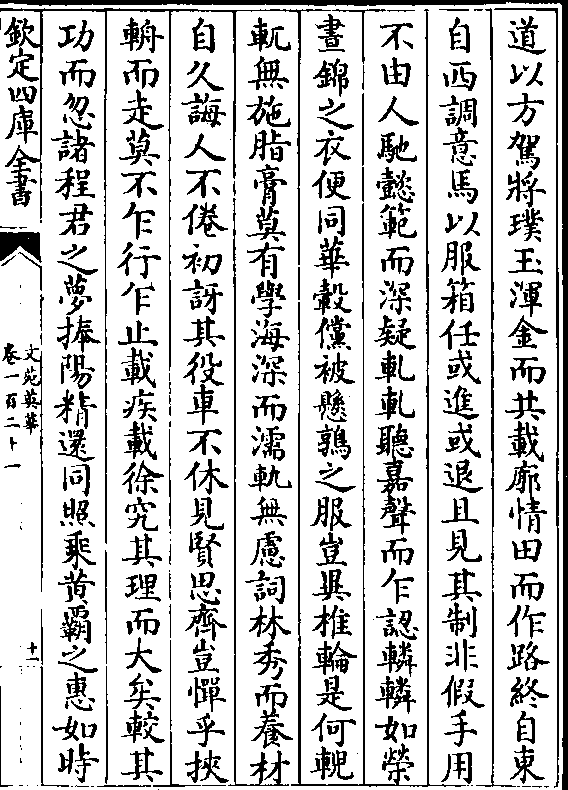 道以方駕將璞玉渾金而共載廓情田而作路終自東
自西調意馬以服箱任或進或退且見其制非假手用
不由人馳懿範而深疑軋軋聽嘉聲而乍認轔轔如榮
晝錦之衣便同華轂儻被懸鶉之服豈異椎輪是何輗
軏無施脂膏莫有學海深而濡軌無慮詞林秀而養材
自久誨人不倦初訝其役車不休見賢思齊豈憚乎挾
輈而走莫不乍行乍止載疾載徐究其理而大矣較其
功而忽諸程君之夢捧陽精還同照乘黄霸之惠如時
欽定四庫全書
文苑英華
卷一百二十一
十二